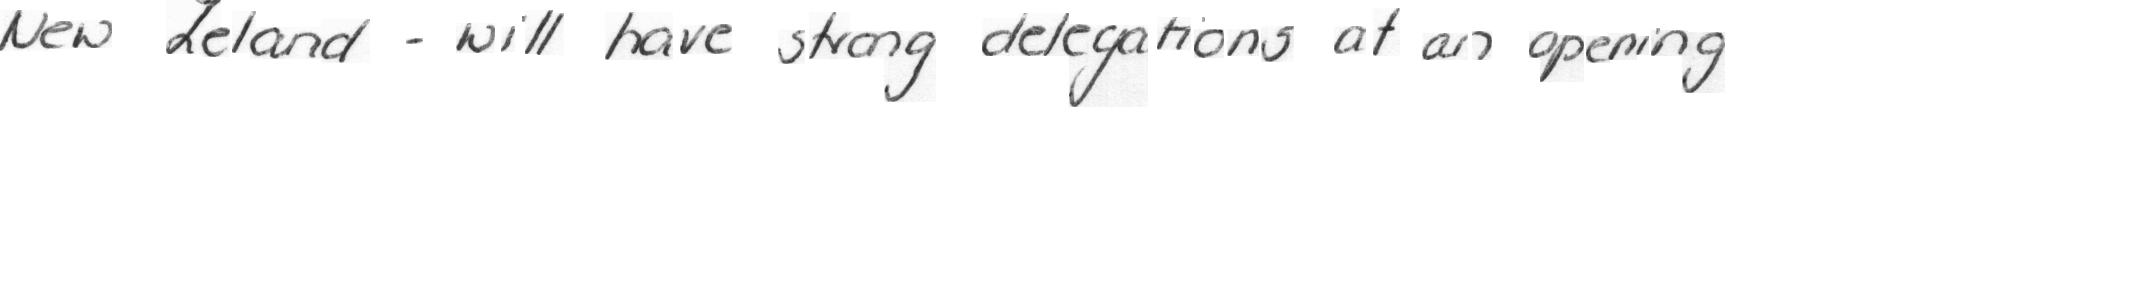 New Zeland - will have strong delegations at an opening